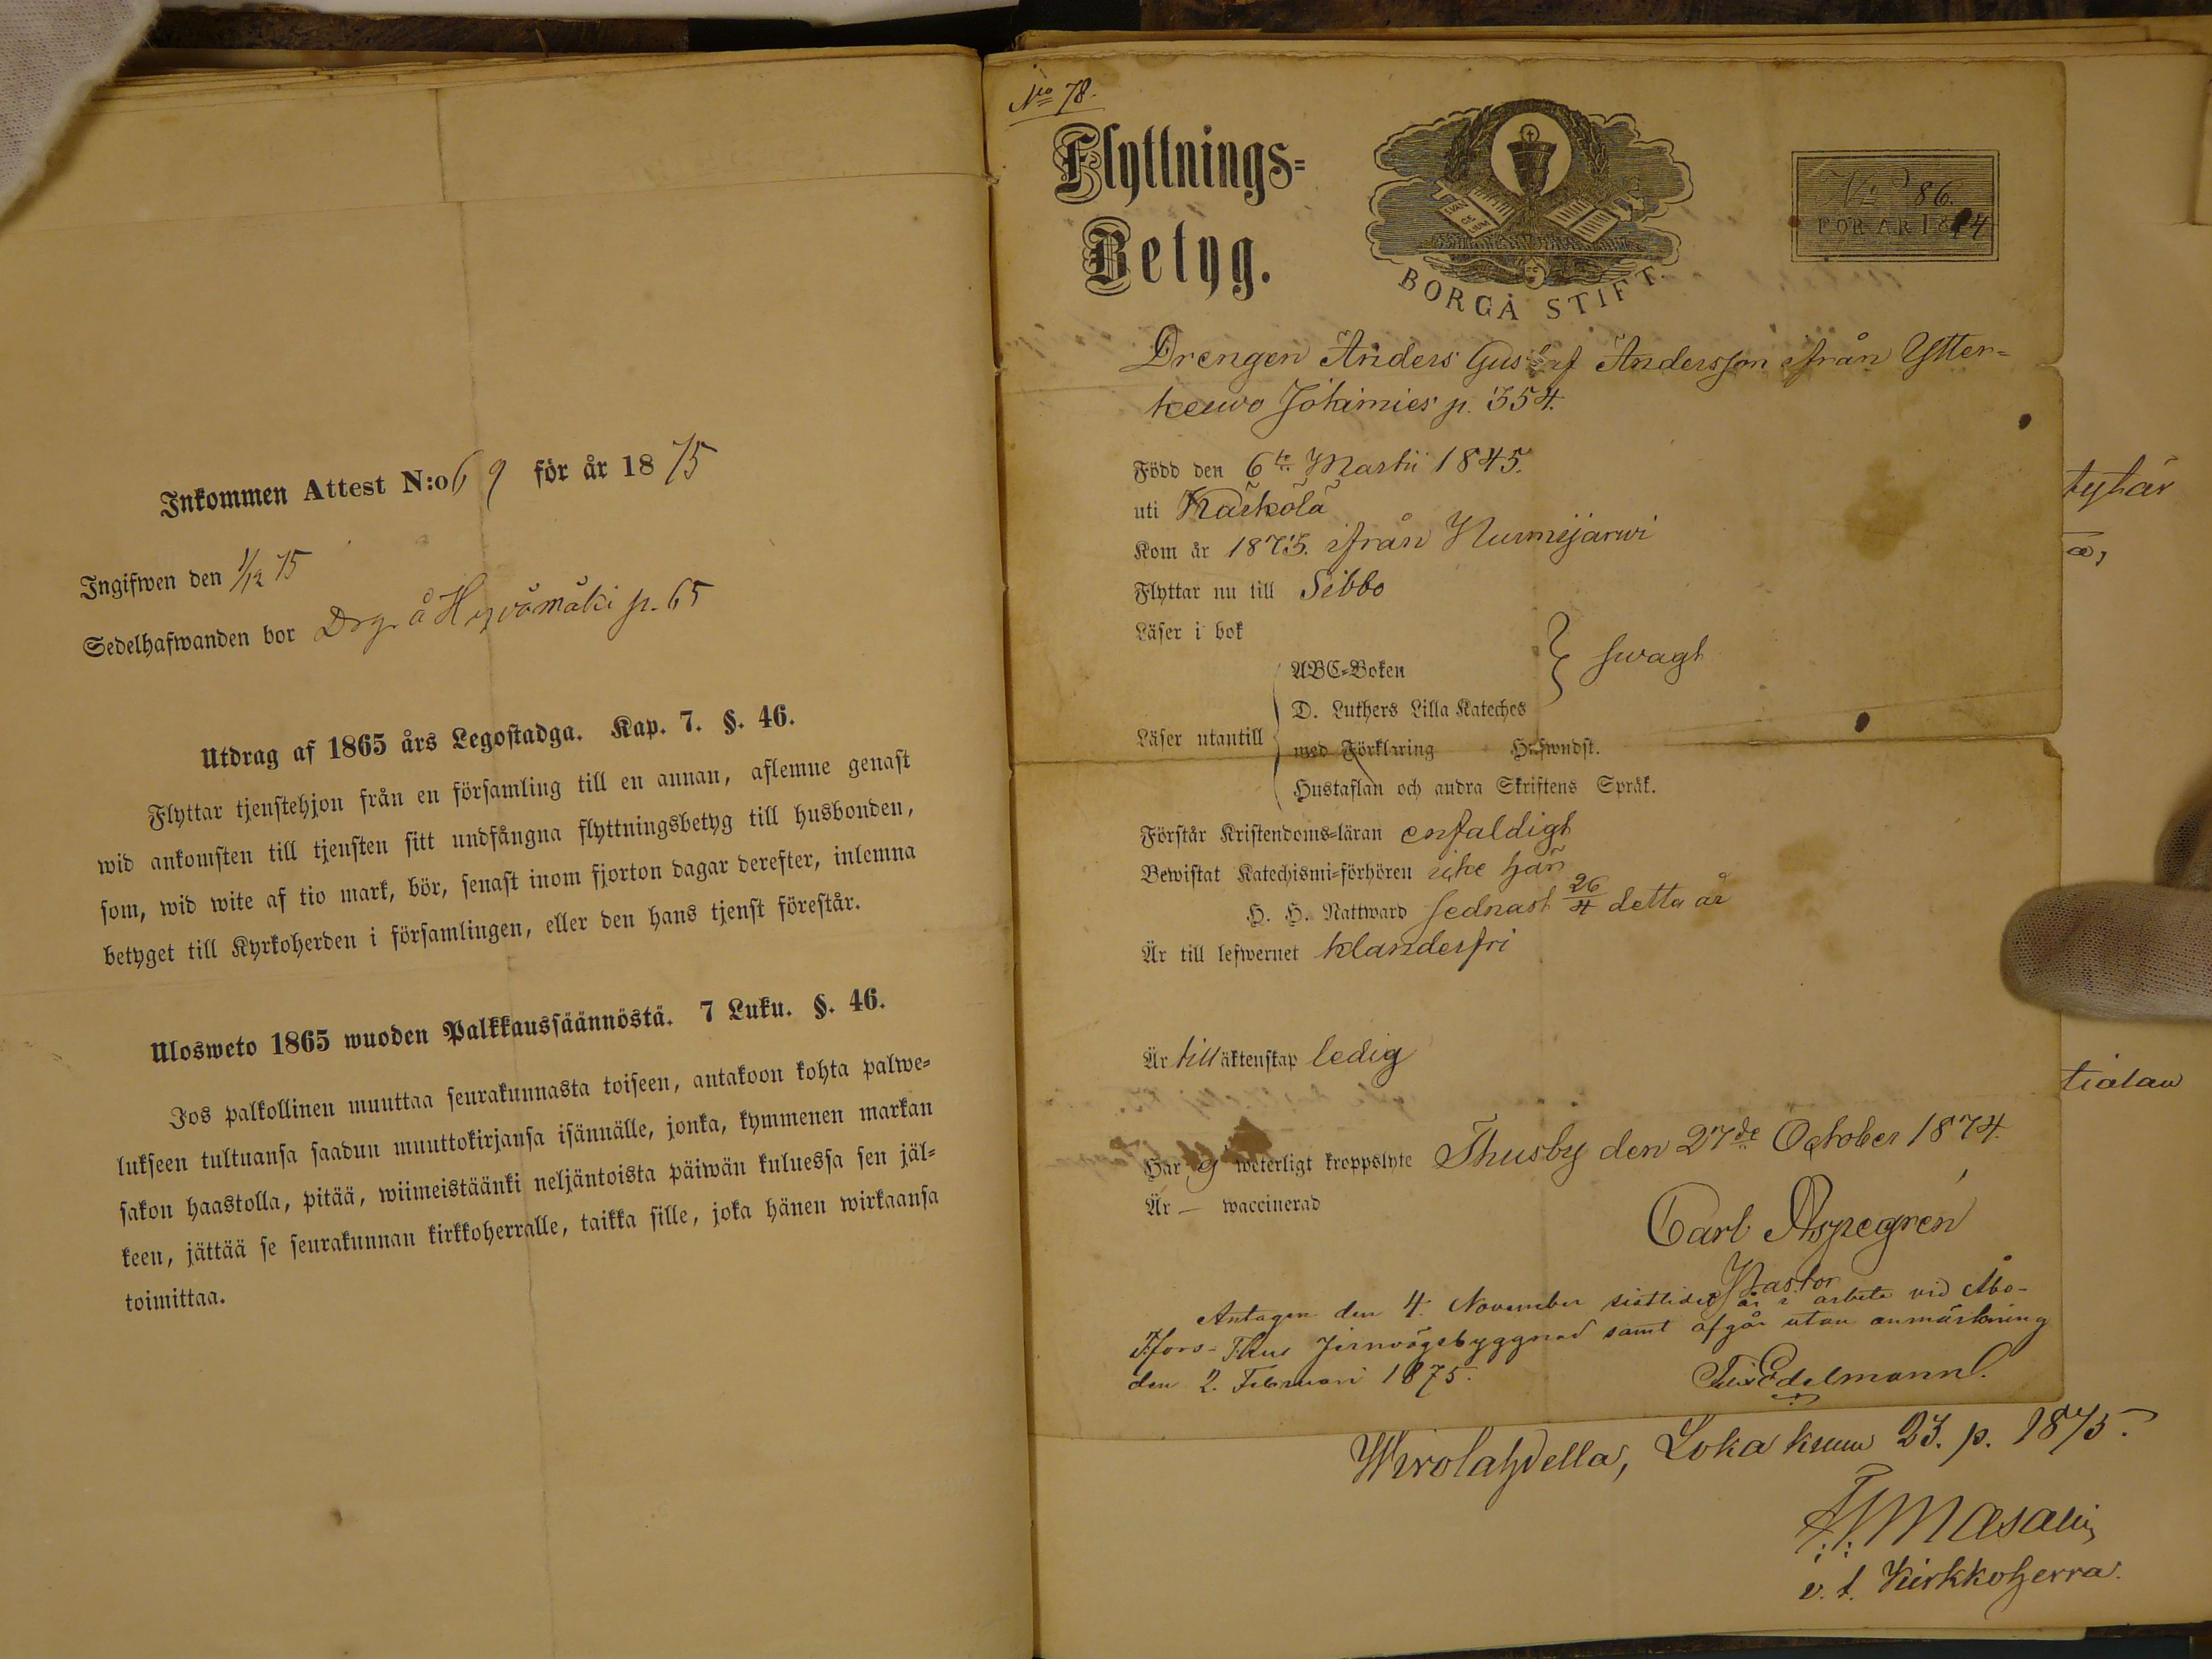 Inkommen Attest N:o 69 för år 1875
Ingifwen den 1/12 75
Sedelhafwanden bor Drg. å Hyvämäki p. 65
Utdrag af 1865 års Legostadga. Kap. 7. §. 46.
Flyttar tjenstehjon från en församling till en annan, aflemne genast
wid ankomsten till tjensten sitt undfångna flyttningsbetyg till husbonden,
som, wid wite af tio mark, bör, senast inom fjorton dagar derefter, inlemna
betyget till Kyrkoherden i församlingen, eller den hans tjenst förestår.
Ulosweto 1865 wuoden Palkkaussäännöstä. 7 Luku. §. 46.
Jos palkollinen muuttaa seurakunnasta toiseen, antakoon kohta palwe=
lukseen tultuansa saadun muuttokirjansa isännälle, jonka, kymmenen markan
sakon haastolla, pitää, wiimeistäänki neljäntoista päiwän kuluessa sen jäl=
keen, jättää se seurakunnan kirkkoherralle, taikka sille, joka hänen wirkaansa
toimittaa.
No 78.
Flyttnings=
Betyg.
EVAN
GE
LIUM
BORGÅ STIFT.
No 86.
FÖR ÅR 1874
Drengen Anders Gustaf Andersson ifrån Ytter=
keuvo Jökimies p. 354.
Född den 6te Martii 1845.
uti Kärkölä
Kom år 1873. ifrån Nurmijärwi
Flyttar nu till Sibbo
Läser i bok
ABC=Boken
D. Luthers Lilla Kateches
swagt
Läser utantill
med Förklaring Hufwudst.
Hustaflan och andra Skriftens Språk.
Förstår Kristendoms=läran enfaldigt
Bewistat Katechismi=förhören icke här
H. H. Nattward sednast 26/4 detta år
Är till lefwernet klanderfri
Är till äktenskap ledig
Har ej weterligt kroppslyte Thusby den 27de October 1874.
Är — waccinerad
Carl Aspegren
Pastor
Antagen den 4. November sistlidet år i arbete vid Åbo-
Tfors-Thus Jernvägsbyggnad samt afgår utan anmärkning
den 2. Februari 1875.
Edelmann.
tyhär
tialan
Wirolahdella, Loka kuun 23. p. 1875.
Masalin
v. t. Kirkkoherra.